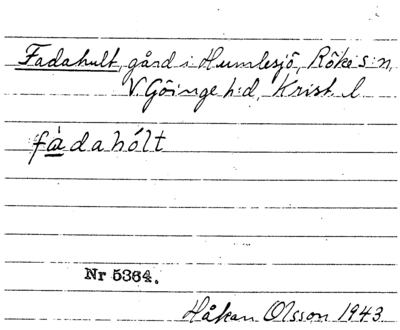 Fadahult, gård i Humlesjö, Röke s:n,
V. Göinge h:d, Krist. l
fàdahólt
Nr 5364.
Håkan Olsson 1943